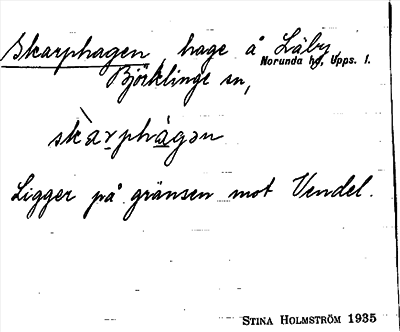 Skarphagen, hage å Läby,
Norunda hd, Upps. l.
Björklinge sn,
skàrphágən
Ligger på gränsen mot Vendel.
STINA HOLMSTRÖM 1935